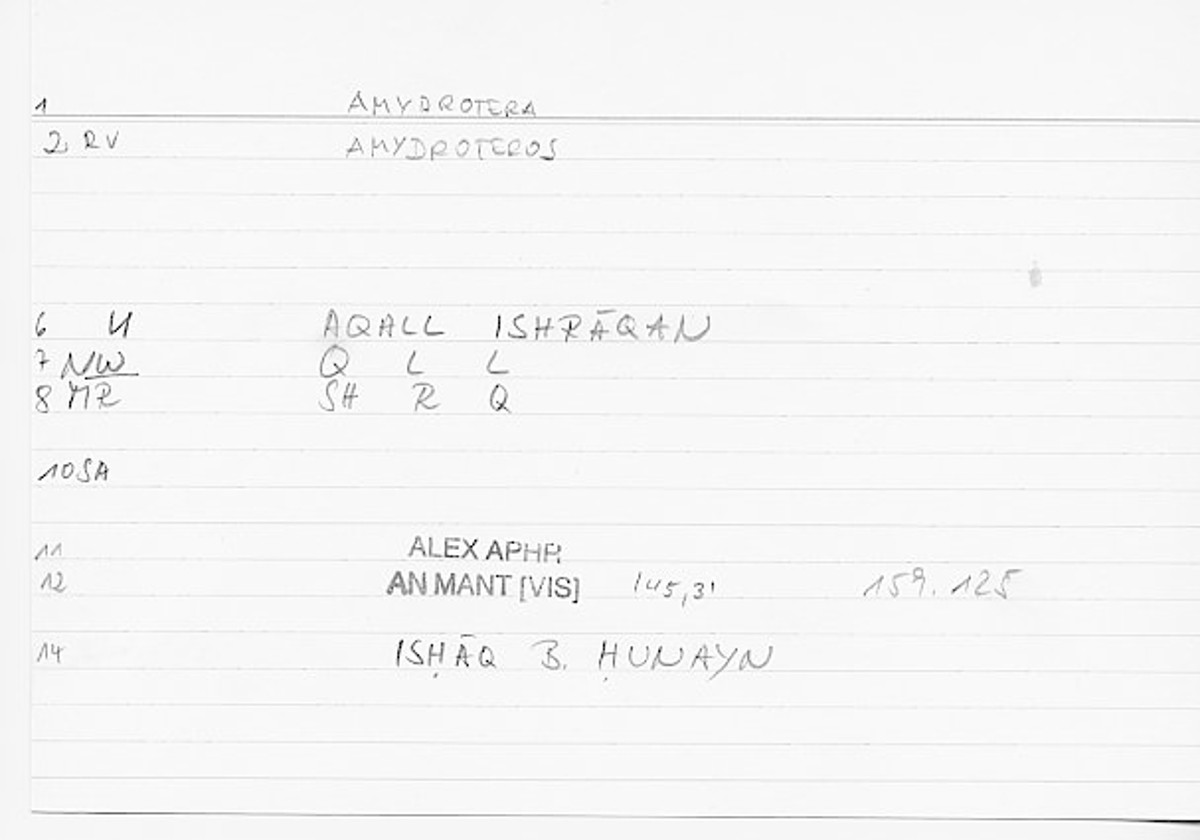 1 AMYDROTERA
2, RV AMYDROTEROS
6 U AQALL ISHRĀQAN
7 NW Q L L
8 MR SH R Q
10 SA
11 ALEX APHR
12 AN MANT [VIS] 145,31 159.125
14 ISḤĀQ B. ḤUNAYN